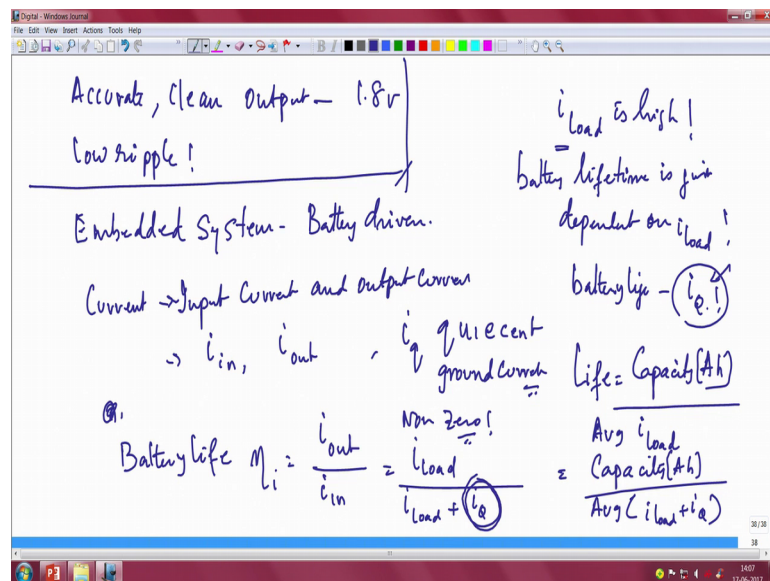 Digital - Windows Journal
File Edit View Insert Actions Tools Help
Accurate, Clean Output - 1.8v
low ripple!
Embedded System - Battery driven.
Current → Input Current and output Curren
→ i in, i out , i q quiecent
ground Curren
Non Zero!
Battery life η i = i out / i in = i Load / i Load + i Q
i Load is high!
battery lifetime is
dependent on i Load!
battery life - i Q !
Life = Capacity [Ah]
Avg i Load
= Capacity [Ah]
Avg ( i Load + i Q )
38/38
38
14:07
17-06-2017